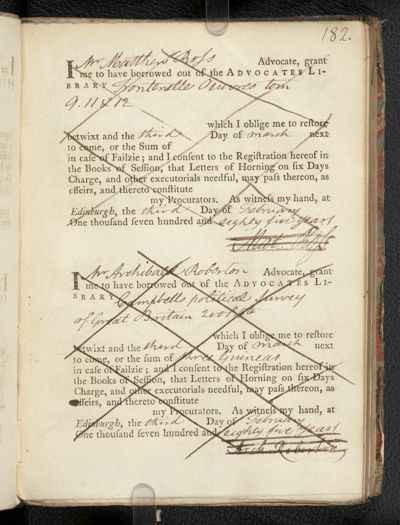 182.
I Mr Matthew Ross Advocate, grant
me to have borrowed out of the ADVOCATES LI-
BRARY Fontenelle Oeuvres tom
9. 11 & 12
which I oblige me to restore
betwixt and the third Day of march next
to come, or the Sum of
in caſe of Failzie; and I conſent to the Regiſtration hereof in
the Books of Seſſion, that Letters of Horning on ſix Days
Charge, and other executorials needful, may paſs thereon, as
effeirs, and thereto conſtitute
my Procurators. As witneſs my hand, at
Edinburgh, the third Day of February
One thouſand ſeven hundred and eighty five years
Matt. Roſs
I Mr Archibald Roberton Advocate, grant
me to have borrowed out of the ADVOCATES LI-
BRARY Campbells political Survey
of Great Britain 2 vols 4to
which I oblige me to reſtore
betwixt and the third Day of march next
to come, or the ſum of three Guineas
in caſe of Failzie; and I conſent to the Regiſtration hereof in
the Books of Seſſion, that Letters of Horning on ſix Days
Charge, and other executorials needful, may paſs thereon, as
effeirs, and thereto conſtitute
my Procurators. As witneſs my hand, at
Edinburgh, the third Day of February
One thouſand ſeven hundred and eighty five years
Arch Roberton